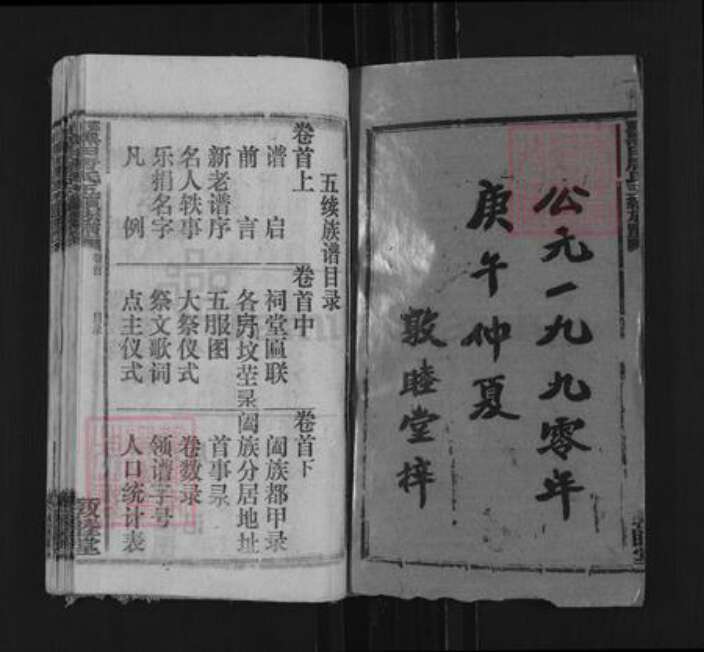 公元一九九零年
庚午仲夏
敦睦堂梓
五续族谱目录
卷首上
谱启
前言
新老谱序
名人轶事
乐捐名字
凡例
卷首中
祠堂匾联
各房坟茔录
五服图
大祭仪式
祭文歌词
点主仪式
卷首下
阖族都甲录
阖族分居地址
首事录
卷数录
领谱字号
人口统计表
敦睦堂